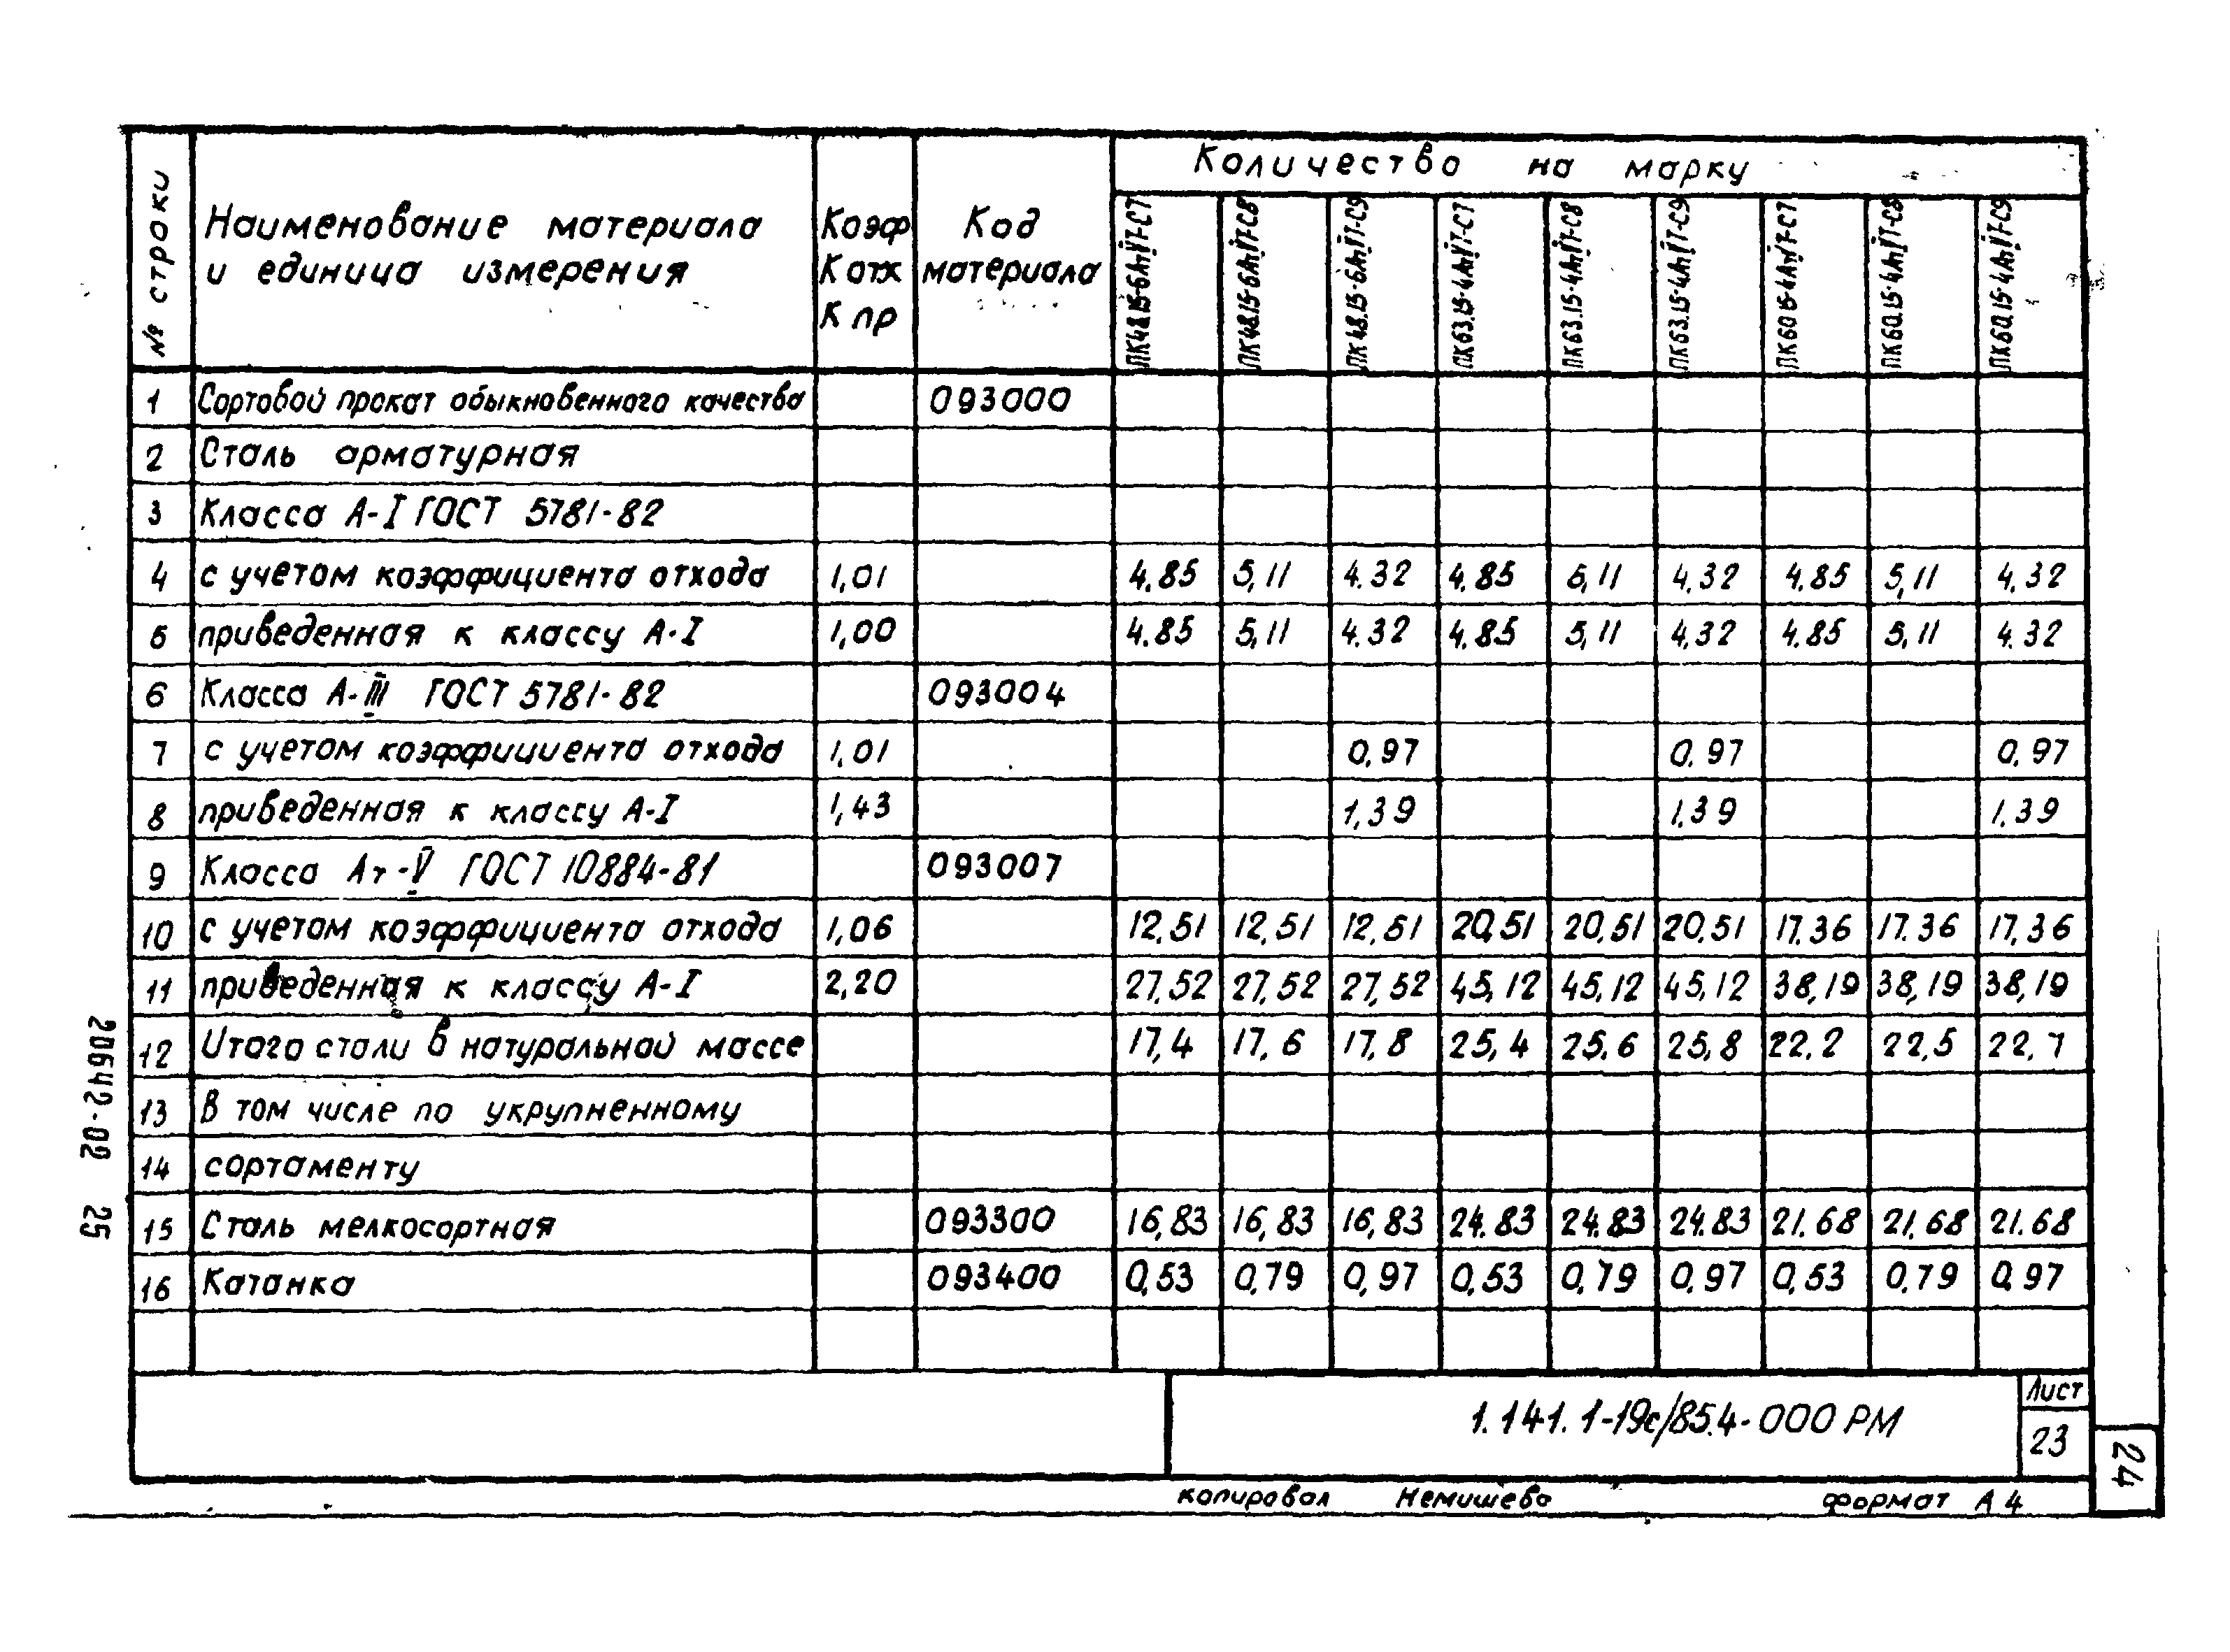 № строки
Наименование материала
и единица измерения
Коэф
К отх
К пр
Код
материала
Количество на марку
1 Сортовой прокат обыкновенного качества 093000
2 Сталь арматурная
3 Класса А-I ГОСТ 5781-82
4 с учетом коэффициента отхода 1,01 4.85 5,11 4.32 4.85 5,11 4,32 4,85 5,11 4,32
5 приведенная к классу А-I 1,00 4.85 5,11 4.32 4.85 5,11 4,32 4.85 5,11 4.32
6 Класса А-III ГОСТ 5781-82 093004
7 с учетом коэффициента отхода 1,01 0,97 0,97 0,97
8 приведенная к классу А-I 1,43 1,39 1,39 1,39
9 Класса Ат-V ГОСТ 10884-81 093007
10 с учетом коэффициента отхода 1,06 12,51 12,51 12,51 20,51 20,51 20,51 17.36 17.36 17,36
11 приведенная к классу А-I 2,20 27,52 27,52 27,52 45,12 45,12 45,12 38,19 38,19 38,19
12 Итого стали в натуральной массе 17,4 17,6 17,8 25,4 25,6 25,8 22,2 22,5 22,7
13 в том числе по укрупненному
14 сортаменту
15 Сталь мелкосортная 093300 16,83 16,83 16,83 24.83 24.83 24.83 21.68 21.68 21.68
16 Катанка 093400 0,53 0,79 0,97 0,53 0,79 0,97 0,53 0,79 0,97
20642-02 25
1.141.1-19с/85.4-000 РМ
Лист
23
24
копировал Немишево формат А4